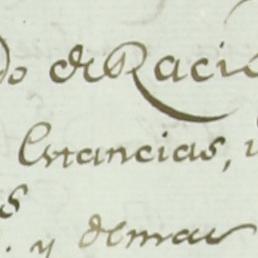 do de Racio
Estancias,
s
. y demas